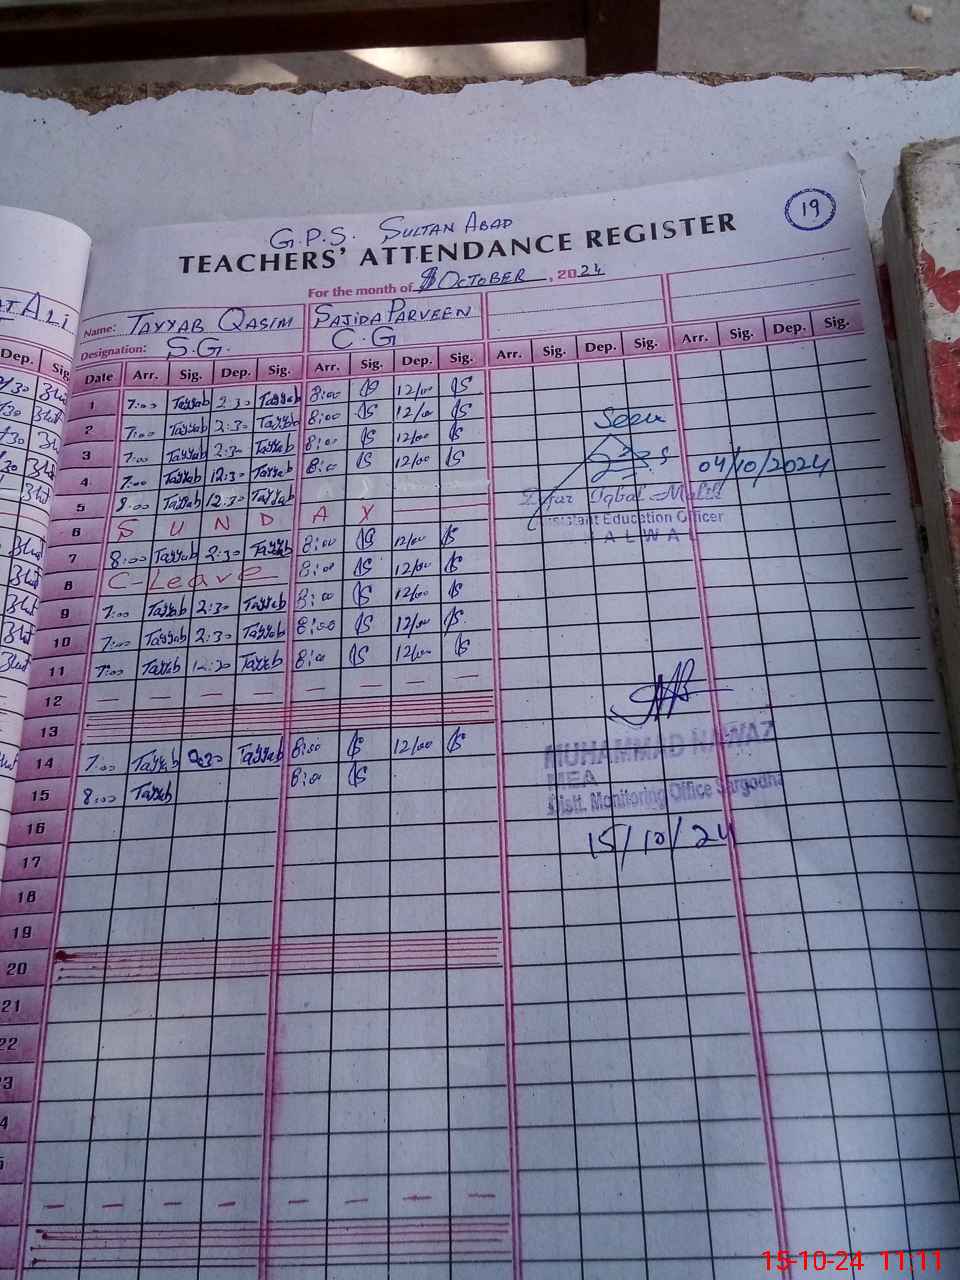 19
G.P.S. SULTAN ABAD
TEACHERS' ATTENDANCE REGISTER
For the month of OCTOBER, 2024
Name: TAYYAB QASIM SAJIDA PARVEEN
Designation: S.G. C.G
Date Arr. Sig. Dep. Sig. Arr. Sig. Dep. Sig. Arr. Sig. Dep. Sig. Arr. Sig. Dep. Sig.
1 7:00 Tayyab 2:30 Tayyab 8:00 12/00
2 7:00 Tayyab 2:30 Tayyab 8:00 12/00
3 7:00 Tayyab 2:30 Tayyab 8:00 12/00
4 7:00 Tayyab 12:30 Tayyab 8:00 12/00
5 8:00 Tayyab 12:30 Tayyab
6 S U N D A Y
7 8:00 Tayyab 2:30 Tayyab 8:00 12/00
8 C-Leave 8:00 12/00
9 7:00 Tayyab 2:30 Tayyab 8:00 12/00
10 7:00 Tayyab 2:30 Tayyab 8:00 12/00
11 7:00 Tayyab Tayyab 8:00 12/00
12
13
14 7:00 Tayyab 2:30 Tayyab 8:00 12/00
15 8:00 Tayyab 8:00
16
17
18
19
20
21
22
Seen
04/10/2024
Iqbal Malik
Assistant Education Officer
MUHAMMAD NAWAZ
MEA
Distt. Monitoring Office Sargodha
15/10/24
AT ALI
Dep. Sig.
15-10-24 11:11